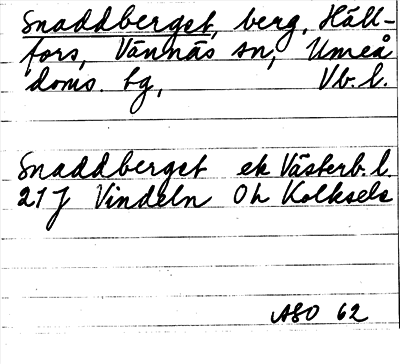 Snaddberget, berg, Häll-
fors, Vännäs sn, Umeå
doms. tg, Vb. l.
Snaddberget ek Västerb. l.
21J Vindeln 0h Kolksels
ASO 62